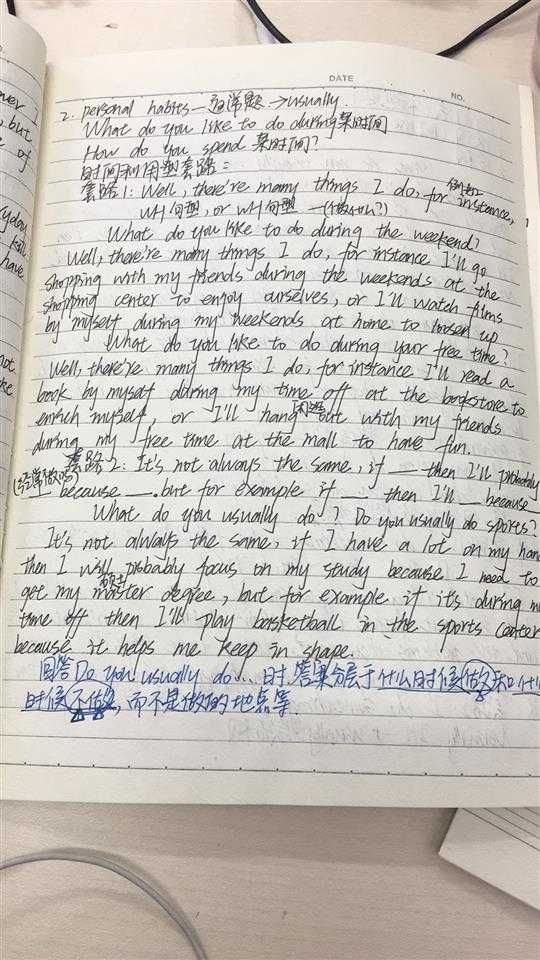 DATE
NO.
2. personal habits — 通常题 → usually.
What do you like to do during某时间
How do you spend 某时间?
时间利用型套路:
例如
套路1: Well, there're many things I do, for instance,
WH句型, or WH句型 — (做什么?)
What do you like to do during the weekend?
Well, there're many things I do, for instance I'll go
shopping with my friends during the weekends at the
shopping center to enjoy ourselves, or I'll watch films
by myself during my weekends at home to loosen up
What do you like to do during your free time?
Well, there're many things I do, for instance I'll read a
book by myself during my time off at the bookstore to
enrich myself, or I'll hang out with my friends
闲逛
during my free time at the mall to have fun.
套路2: It's not always the same, if __ then I'll probably
(经常做吗) __ because __. but for example if __ then I'll __ because
What do you usually do? Do you usually do sports?
It's not always the same, if I have a lot on my hand
then I will probably focus on my study because I need to
硕士
get my master degree, but for example if its during m
time off then I'll play basketball in the sports center
because it helps me keep in shape.
回答Do you usually do... 时, 答案分层于什么时候做和什
时候不做, 而不是做的地点等
ver I
, but
e of
kill
have
not.
ke